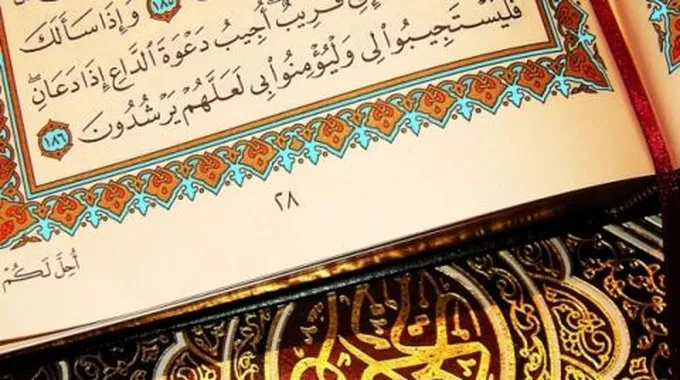 ١٨٥ وَإِذَا سَأَلَكَ
قَرِيبٌ أُجِيبُ دَعْوَةَ الدَّاعِ إِذَا دَعَانِ ۖ
فَلْيَسْتَجِيبُوا لِي وَلْيُؤْمِنُوا بِي لَعَلَّهُمْ يَرْشُدُونَ ١٨٦
٢٨
أُحِلَّ لَكُمْ